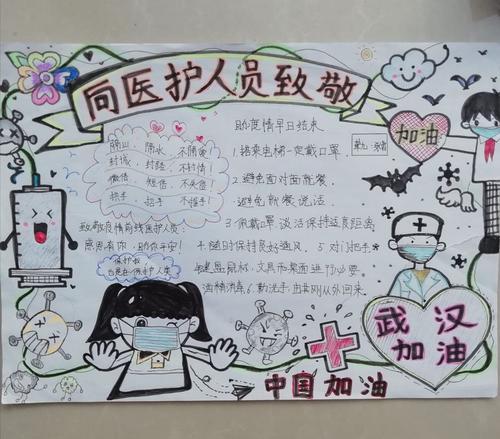 向医护人员致敬
隔山 隔水 不隔爱
封城 封路 不封情
微信 短信 不失信
握手 招手 不撒手
致敬疫情前线医护人员:
感恩有你 助你平安!
保护我
也是在保护人类
助疫情早日结束
1.搭乘电梯一定戴口罩.
2.避免面对面就餐.
避免就餐说话.
3.佩戴口罩 谈话保持适度距离
4.随时保持良好通风. 5.对门把手.
键盘鼠标.文具和桌面进行必要
消毒 6.勤洗手,由其刚从外回来.
加油
武汉
加油
中国加油